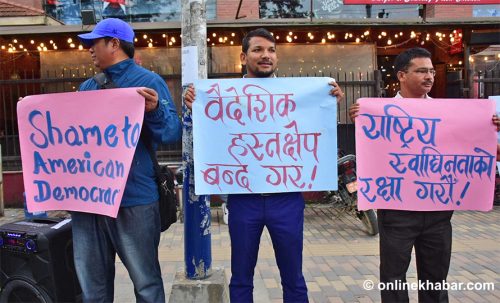 Shame to
American
Democracy
वैदेशिक
हस्तक्षेप
बन्द गर!
राष्ट्रिय
स्वाधिनताको
रक्षा गरौं!
© onlinekhabar.com